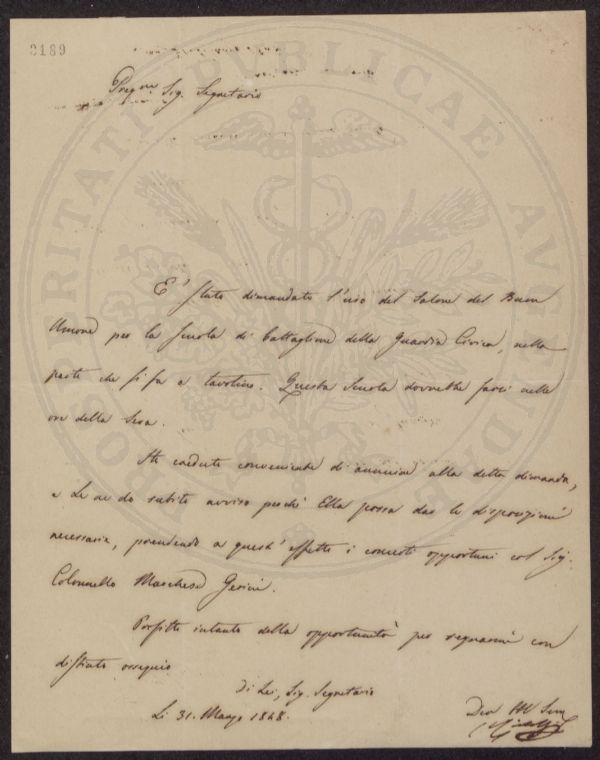 3189
Preg.mo Sig. Segretario
E' stato dimandato l'uso del Salone del Buon
Umore per la Scuola di Battaglione della Guardia Civica, nella
parte che si fa a tavolino. Questa Scuola dovrebbe farsi nelle
ore della Sera.
Ho creduto conveniente di annuire alla detta dimanda,
e Le ne do subito avviso perchè Ella possa dar le disposizioni
necessarie, prendendo a quest' effetto i concerti opportuni col Sig.
Colonnello Marchese Gerini.
Profitto intanto della opportunità per segnarmi con
distinto ossequio
Di Lei, Sig. Segretario
Li 31. Marzo 1848.
PROSPERITATI PUBLICAE AUGENDAE